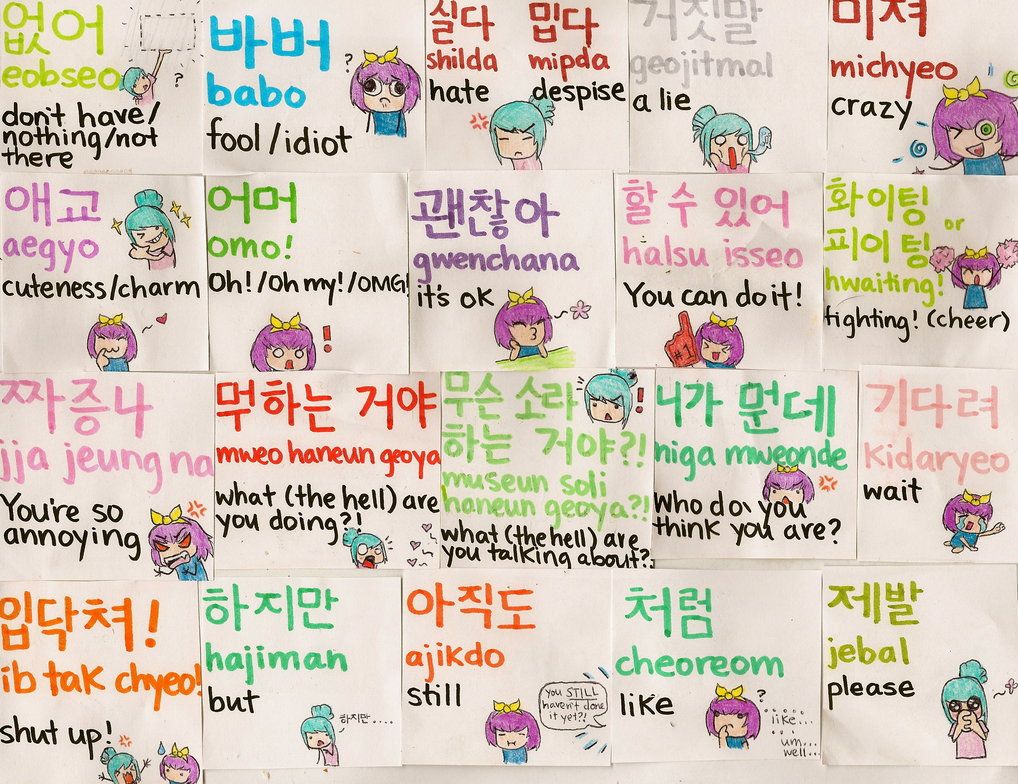 없어
eobseo
?
don't have/
nothing/not
there
바버
babo
?
fool/idiot
실다 밉다
shilda mipda
hate despise
거짓말
geojitmal
a lie
미쳐
michyeo
crazy
애교
aegyo
cuteness/charm
어머
omo!
Oh!/Oh my!/OMG!
!
괜찮아
gwenchana
it's ok
할 수 있어
halsu isseo
You can do it!
#1
화이팅 or
피이팅
hwaiting!
fighting! (cheer)
짜증나
jja jeung na
You're so
annoying
뭐하는 거야
mweo haneun geoya
what (the hell) are
you doing?!
무슨 소라
하는 거야?!
!
museun soli
haneun geoya?!
what (the hell) are
you talking about?!
니가 뭔데
niga mweonde
Who do you
think you are?
기다려
kidaryeo
wait
입닥쳐!
ib tak chyeo!
shut up!
하지만
hajiman
but
하지만....
아직도
ajikdo
still
you STILL
haven't done
it yet?!
처럼
cheoreom
like
?
like...
um...
well...
제발
jebal
please